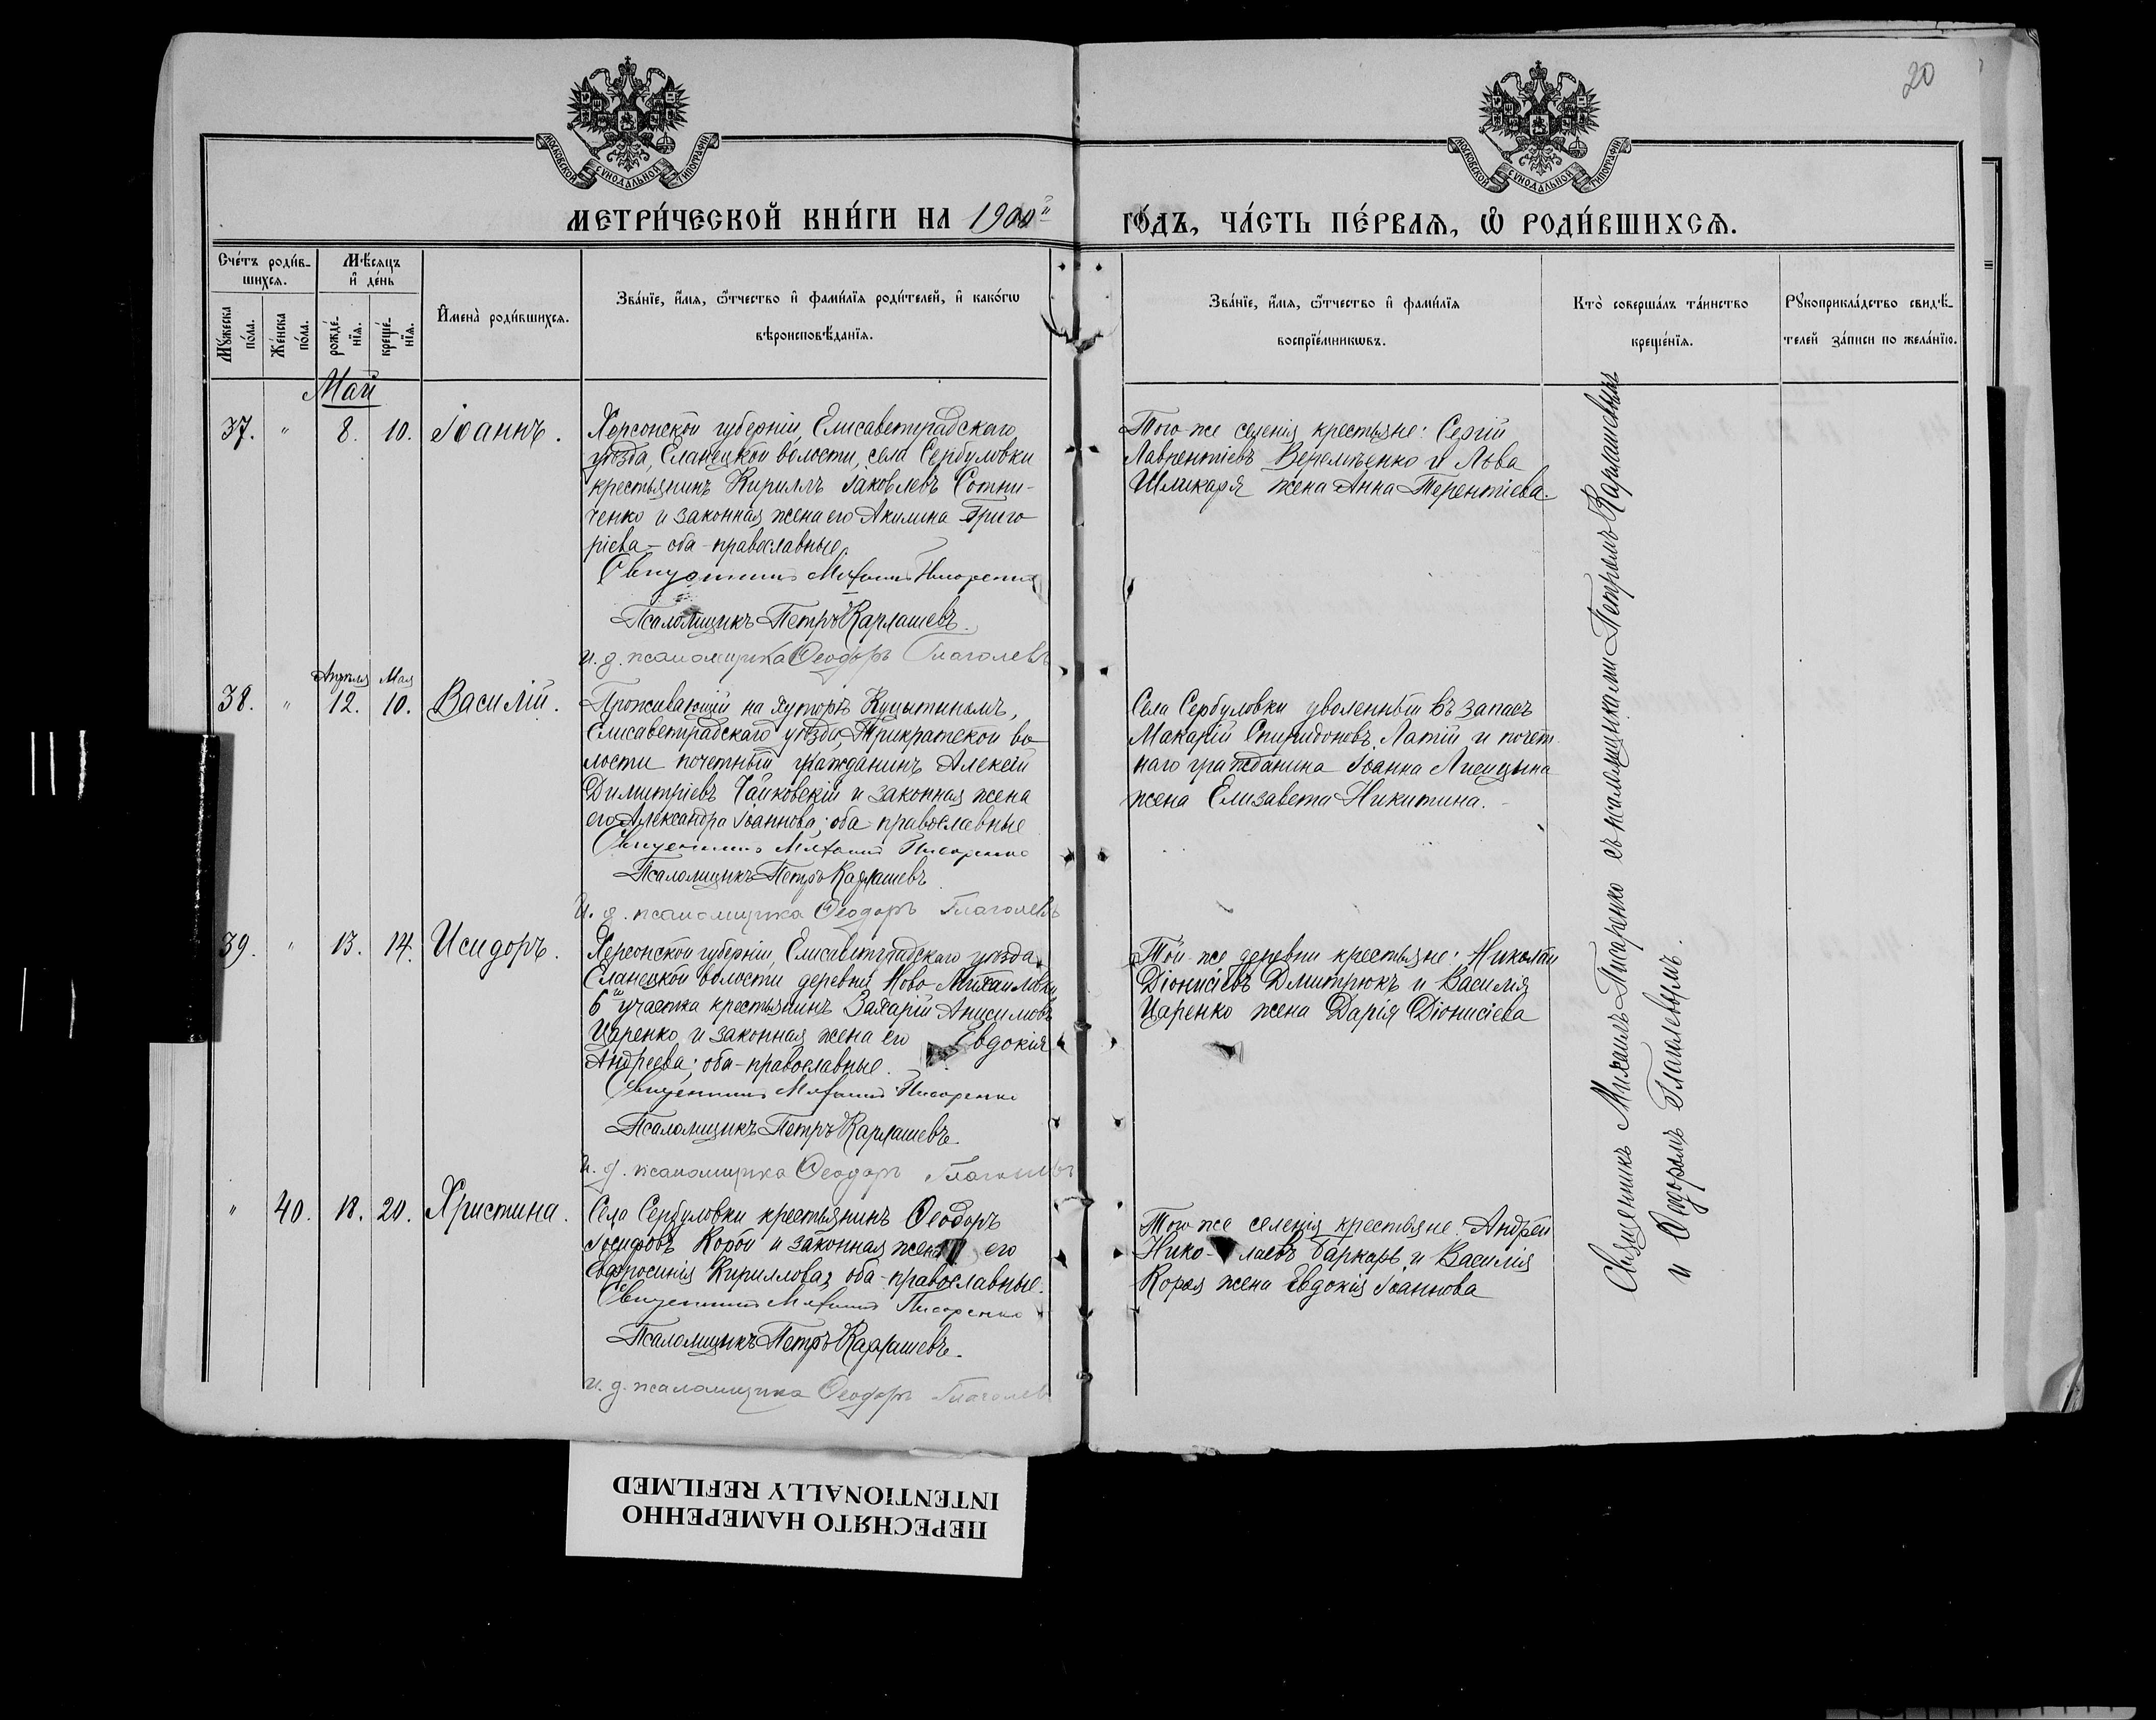 20
МОСКОВСКОЙ СУНОДАЛЬНОЙ ТИПОГРАФІИ
МОСКОВСКОЙ СУНОДАЛЬНОЙ ТИПОГРАФІИ
МЕТРИ́ЧЕСКОЙ КНИ́ГИ НА 1900й
ГО́ДЪ, ЧА́СТЬ ПЕ́РВАЯ, Ѡ РОДИ́ВШИХСЯ.
Сче́тъ роди́в-
шихся.
Му́жеска по́ла.
Же́нска по́ла.
Мѣ́сяцъ
и де́нь
рожде́-
нїя.
креще́-
нїя.
Имена̀ роди́вшихся.
Зва́нїе, и́мя, ѻ́тчество и фами́лїя роди́телей, и како́гѡ
вѣроисповѣ́данїя.
Зва́нїе, и́мя, ѻ́тчество и фами́лїя
воспрїе́мникѡвъ.
Кто̀ соверша́лъ та́инство
креще́нїя.
Рукоприкла́дство свидѣ́-
телей за́писи по жела́нїю.
Май
37. " 8. 10. Іоаннъ.
Херсонской губерніи, Елисаветградскаго
уѣзда, Еланецкой волости, села Сербуловки
крестьянинъ Кириллъ Іаковлевъ Сотни-
ченко и законная жена его Акилина Григо
ріева - оба православные.
Священникъ Михаилъ Писаренко
Псаломщикъ Петръ Карлашевъ.
и. д. псаломщика Ѳеодоръ Глаголевъ
Того-же селенія крестьяне: Сергій
Лаврентіевъ Веремѣенко и Льва
Шликаря жена Анна Терентіева.
Апрѣля Мая
38. " 12. 10. Василій.
Проживающій на хуторѣ Куцытиномъ,
Елисаветградскаго уѣзда, Трикратской во
лости почетный гражданинъ Алексѣй
Димитріевъ Чайковскій и законная жена
его Александра Іоаннова; оба православные
Священникъ Михаилъ Писаренко
Псаломщикъ Петръ Карлашевъ
И. д. псаломщика Ѳеодоръ Глаголевъ
Села Сербуловки уволенный въ запасъ
Макарій Спиридоновъ Латій и почет
наго гражданина Іоанна
жена Елизавета Никитина.
39. " 13. 14. Исидоръ.
Херсонской губерніи, Елисаветградскаго уѣзда
Еланецкой волости деревни Ново Михайловки
6й участка крестьянинъ Захарій Анисимовъ
Царенко и законная жена его Евдокія
Андреева; оба - православные.
Священникъ Михаилъ Писаренко
Псаломщикъ Петръ Карлашевъ
И. д. псаломщика Ѳеодоръ Глаголевъ
Той-же деревни крестьяне: Николай
Діонисіевъ Дмитрюкъ и Василія
Царенко жена Дарія Діонисіева
" 40. 18. 20. Христина.
Села Сербуловки крестьянинъ Ѳеодоръ
Іосифовъ и законная жена его
Евфросинія Кириллова, оба - православные.
Священникъ Михаилъ Писаренко
Псаломщикъ Петръ Карлашевъ.
и. д. псаломщика Ѳеодоръ Глаголевъ
Того же селенія крестьяне: Андрей
Нико-лаевъ Баркарь и Василія
жена Евдокія Іоаннова
Священникъ Михаилъ Писаренко съ псаломщиками Петромъ Карлашевымъ
и Ѳеодоромъ Глаголевымъ.
ПЕРЕСНЯТО НАМЕРЕННО
INTENTIONALLY REFILMED